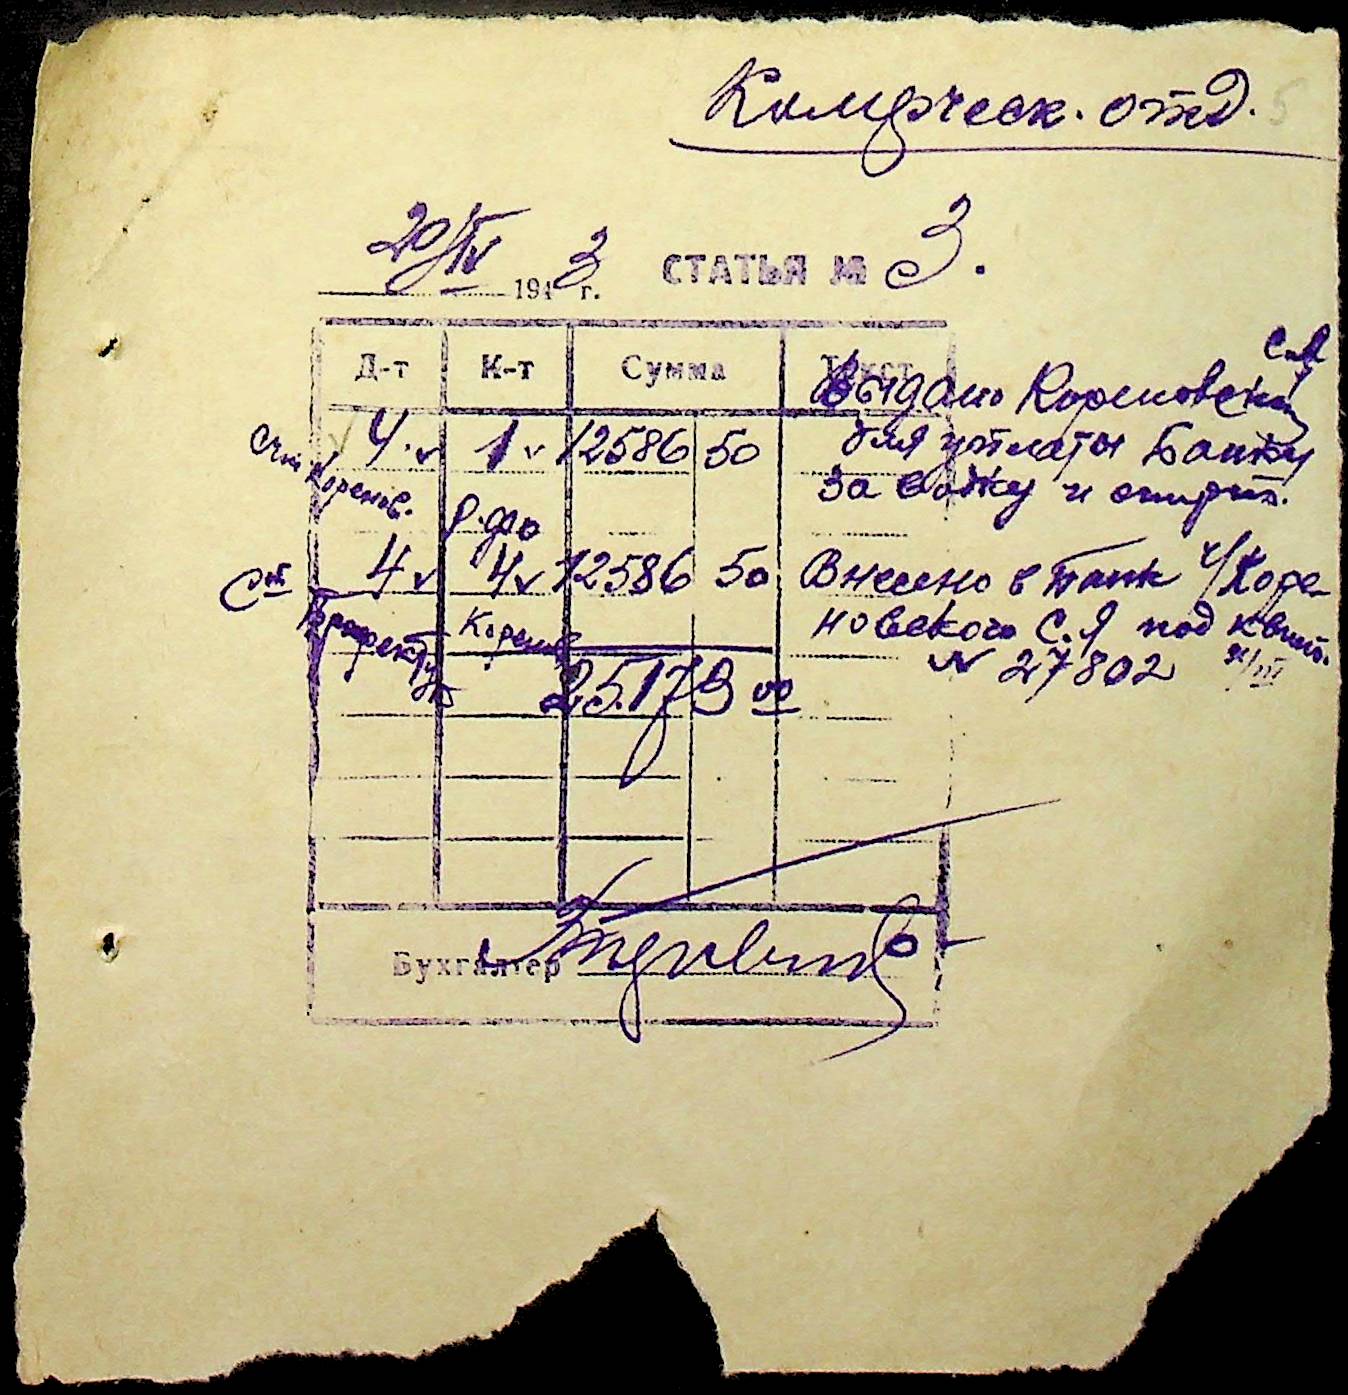 Комерческ. отд.
20/IV 1943 г. СТАТЬЯ № 3.
Д-т К-т Сумма Текст
4. 1 12586 50 Выдано Кореновском С.Я
для уплаты Банку
за водку и спирт.
Коренов.
4 4 12586 50 Внесено в Банк ч/Коре-
новского С.Я под квит.
№ 27802
Коренов
25.173 00
Бухгалтер